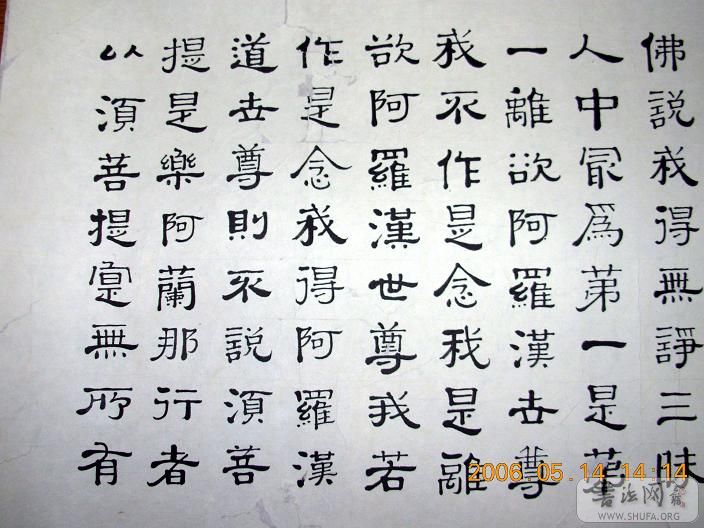 佛說我得無諍三昧
人中冣爲第一是第
一離欲阿羅漢世尊
我不作是念我是離
欲阿羅漢世尊我若
作是念我得阿羅漢
道世尊則不說須菩
提是樂阿蘭那行者
以須菩提寔無所有
2006.05.14 14:14
書法网
WWW.SHUFA.ORG